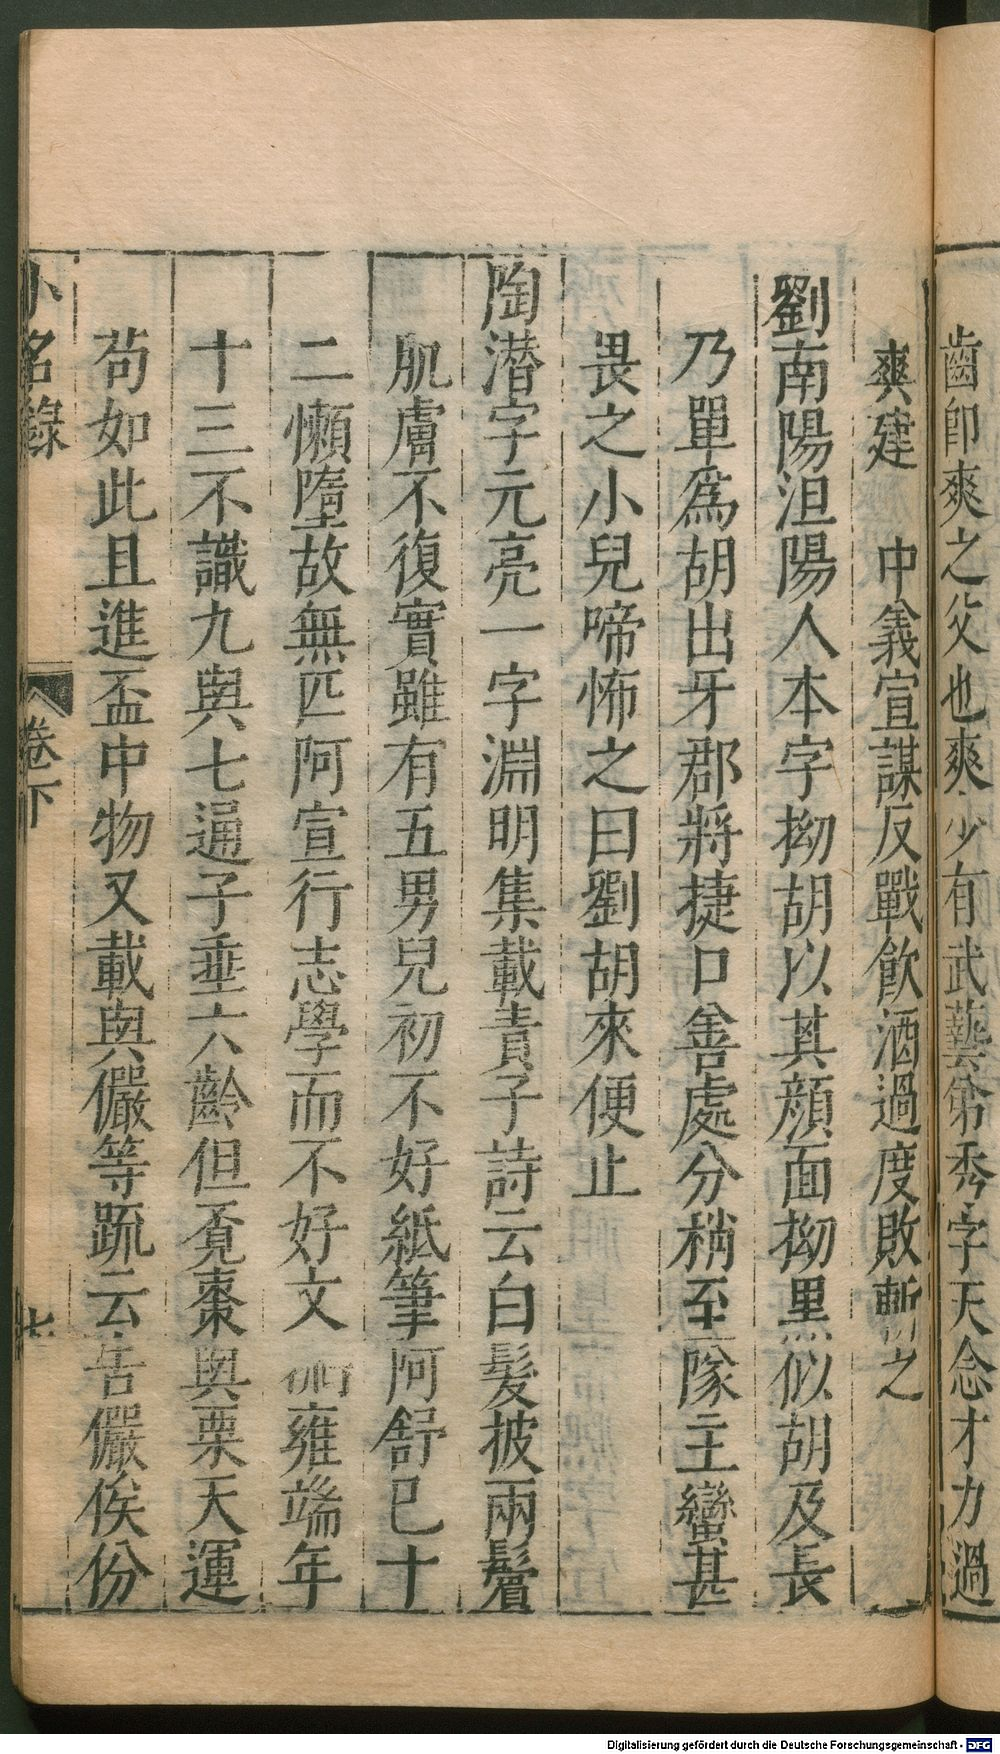 齒卽爽之父也爽少有武藝爺秀字天念才力過
爽建　中義宣謀反戰飲酒過度敗斬之
劉南陽沮陽人本字拗胡以其顏面拗黑似胡及長
乃單爲胡出牙郡將捷口善處分稍至隊主蠻甚
畏之小兒啼怖之曰劉胡來便止
陶潜字元亮一字淵明集載責子詩云白髮披兩鬢
肌膚不復實雖有五男兒初不好紙筆阿舒已十
二懶墮故無匹阿宣行志學而不好文術雍端年
十三不識九與七通子垂六齡但覓棗與栗天運
苟如此且進盃中物又載與儼等疏云告儼俟份
小名錄
卷下
七
Digitalisierung gefördert durch die Deutsche Forschungsgemeinschaft - DFG